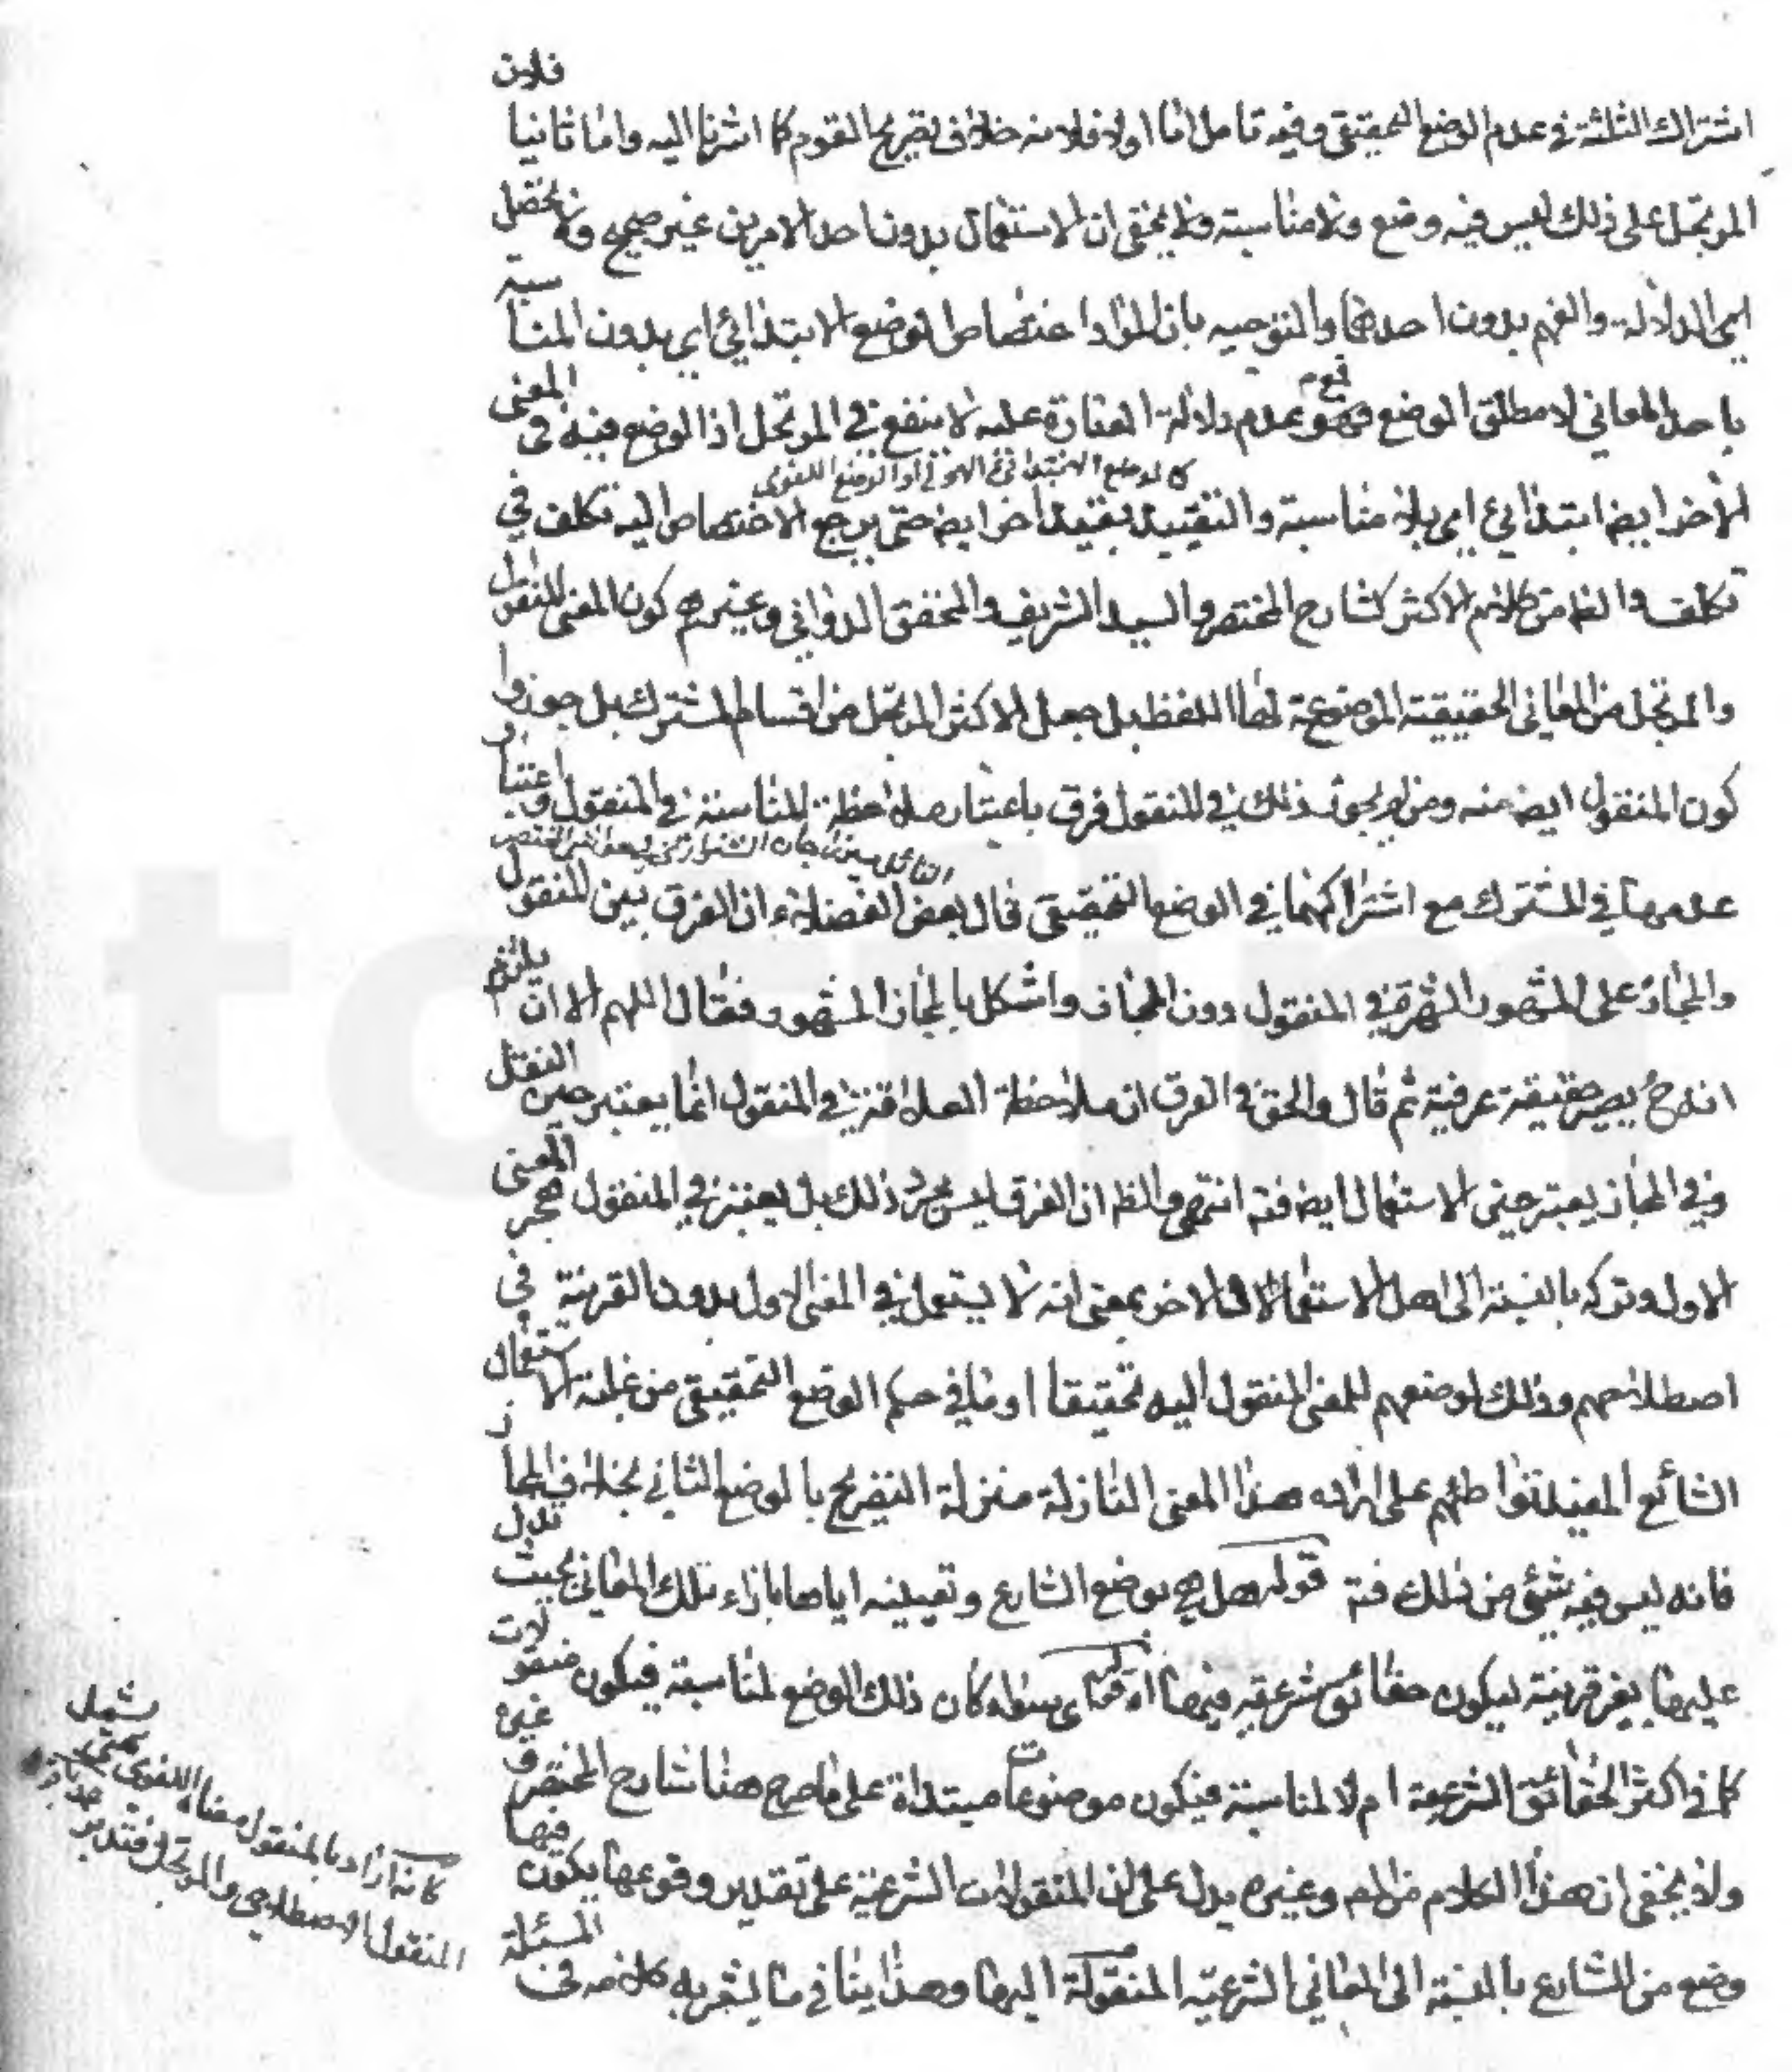 اشتراك الثلثة في عدم الوضع التحقيقي وفيه تامل اما اولا فلانه خلاف تصريح القوم كما اشرنا اليه واما ثانيا فلان
المرتجل على ذلك ليس فيه وضع ولا مناسبة ولا يخفى ان الاستعمال بدون احد الامرين غير صحيح ولا يحصل
الدلالة والفهم بدون احدهما والتوجيه بان المراد اختصاص الوضع الابتدائي اي بدون المناسبة
باحد المعاني لا مطلق الوضع فهو مع عدم دلالة العبارة عليه لا ينفع في المرتجل اذا لوضع فيه في المعنى
كالوضع الابتدائي العرفي او الوضع اللغوي
الاخر ايضا ابتدائي اي بلا مناسبة والتقييد بقيد اخر ايضا حتى يرجع الاختصاص اليه تكلف في
تكلف والظ من كلام الاكثر كشارح المختصر والسيد الشريف والمحقق الدواني وغيرهم كون المعنى المنقول
والمرتجل من المعاني الحقيقية الموضوعة لها اللفظ بل جعل الاكثر المرتجل من اقسام المشترك بل جوزوا
كون المنقول ايضا منه ومن لم يجوز ذلك في المنقول فرق باعتبار ملاحظة المناسبة في المنقول واعتبار
القائل ميرزا جان الشيرازي
عدمها في المشترك مع اشتراكهما في الوضع التحقيقي قال بعض الفضلاء ان الفرق بين المنقول
والمجاز على المشهور الشهرة في المنقول دون المجاز واشكل بالمجاز المشهور فقال اللهم الا ان يلتزم
انه ح يصير حقيقة عرفية ثم قال والحق في الفرق ان ملاحظة العلاقة في المنقول انما يعتبر حين النقل
وفي المجاز يعتبر حين الاستعمال ايضا فت انتهى والظ ان الفرق ليس مجرد ذلك بل يعتبر في المنقول هجر المعنى
الاول وتركه بالنسبة الى اهل الاستعمال الاخر بمعنى انه لا يستعمل في المعنى الاول بدون القرينة في
اصطلاحهم وذلك لوضعهم للمعنى المنقول اليه تحقيقا او ما في حكم الوضع التحقيقي من غلبة الاستعمال
الشائع المفيد لتواطئهم على ارادة هذا المعنى النازلة منزلة التصريح بالوضع الثاني بخلاف المجاز
فانه ليس فيه شيئ من ذلك فت قوله هل هي بوضع الشارع وتعيينه اياها بازاء تلك المعاني بحيث تدل
عليها بغير قرينة ليكون حقائق شرعية فيها اه اي سواء كان ذلك الوضع لمناسبة فيكون منقولات
كما في اكثر الحقائق الشرعية ام لا لمناسبة فيكون موضوعات مبتداة على ما صرح هنا شارح المختصر وغيره
ولا يخفى ان هذا الكلام من المص وغيره يدل على ان المنقولات الشرعية على تقدير وقوعها يكون فيها
وضع من الشارع بالنسبة الى المعاني الشرعية المنقولة اليها وهذا ينافي ما يشعر به كلامه في المسئلة
كانه اراد بالمنقول معناه اللغوي حتى يشمل
المنقول الاصطلاحي والمرتجل فتدبر